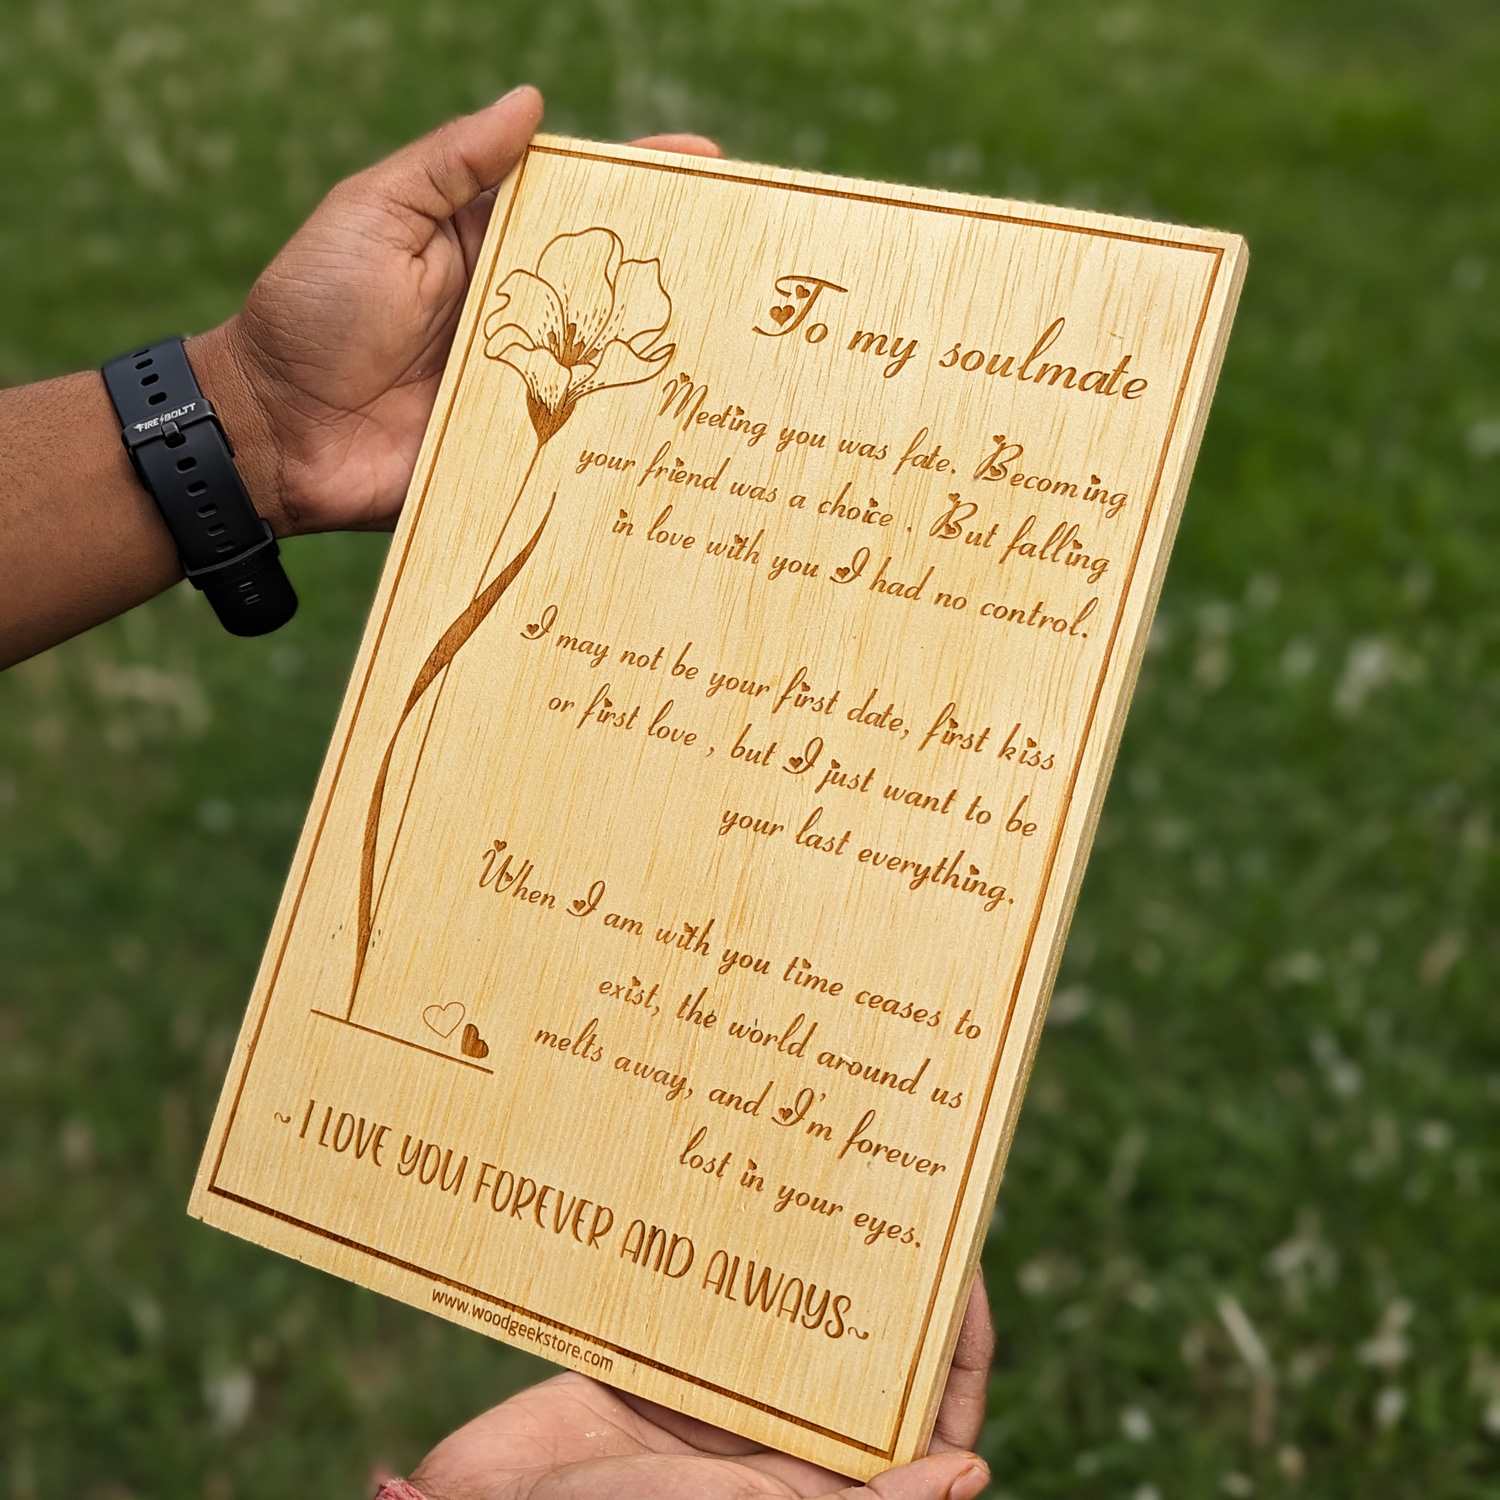 To my soulmate
Meeting you was fate. Becoming
your friend was a choice . But falling
in love with you I had no control.
I may not be your first date, first kiss
or first love , but I just want to be
your last everything.
When I am with you time ceases to
exist, the world around us
melts away, and I'm forever
lost in your eyes.
~ I LOVE YOU FOREVER AND ALWAYS~
www.woodgeekstore.com
FIRE BOLTT